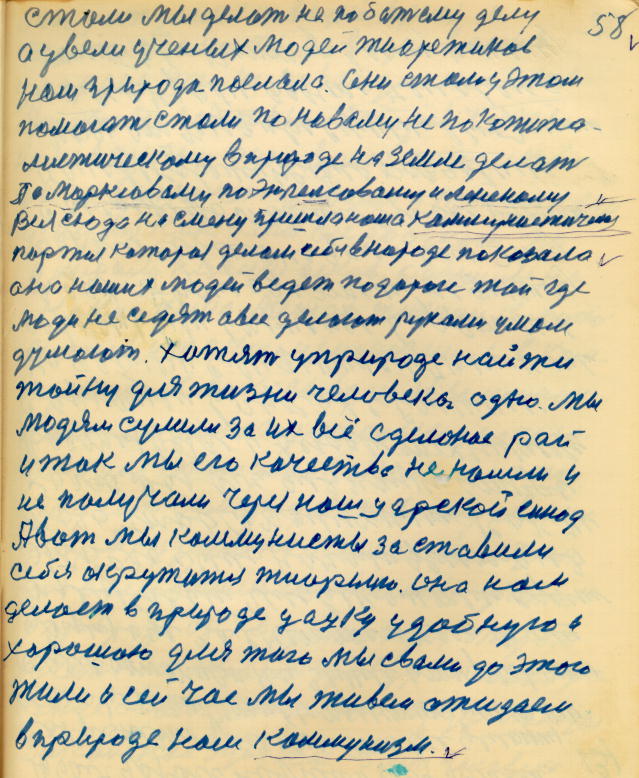 58
стали мы делат не по божему делу
а увели ученых людей тиоретиков
нам природа послала. Они стали у этом
помогат стали по новаму не по копита-
листическому в природе на земле делат
По Марксоваму по Энгелсоваму и Лененому
Вся сюда на смену пришла наша Каммунистичеся
партия которая делам себя в народе показала
она наших людей ведет по дороге той где
люди не седят а все делают руками умом
думают. Хотят у природе найти
тайну для жизни человека одно. Мы
людям сулили за их всё сделоное рай
и так мы его качества не нашли и
не получали через наш царской синод
А вот мы каммунисты заставили
себя окружится тиорию. Она нам
делает в природе удобную и
хорошою для таго мы свами до этого
жили и сей час мы живем ожидаем
в природе нам Каммунизм.